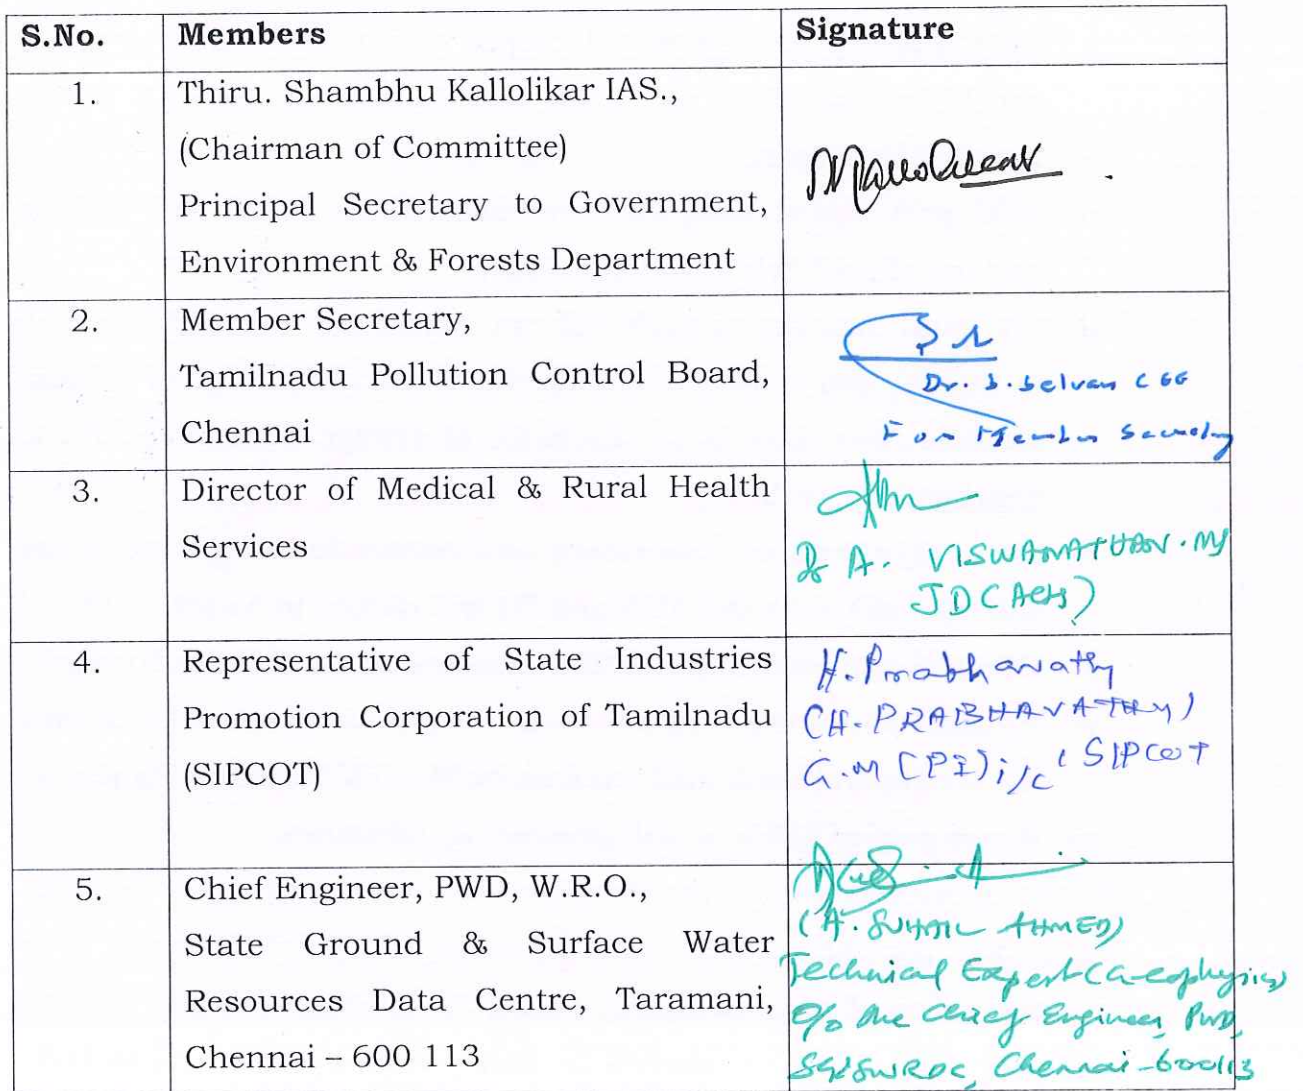 S.No. Members Signature
1. Thiru. Shambhu Kallolikar IAS.,
(Chairman of Committee)
Principal Secretary to Government,
Environment & Forests Department
2. Member Secretary,
Tamilnadu Pollution Control Board,
Chennai
Dr. S. Selvan
For Member Secretary
3. Director of Medical & Rural Health
Services
Dr A. VISWANATHAN. MS
JD
4. Representative of State Industries
Promotion Corporation of Tamilnadu
(SIPCOT)
H. Prabhavathy
(H. PRABHAVATHY)
G.M (PI) i/c, SIPCOT
5. Chief Engineer, PWD, W.R.O.,
State Ground & Surface Water
Resources Data Centre, Taramani,
Chennai – 600 113
(A. SUHAIL AHMED)
Technical Expert (Geophysics)
O/o the Chief Engineer, PWD,
SG&SWRDC, Chennai-600113